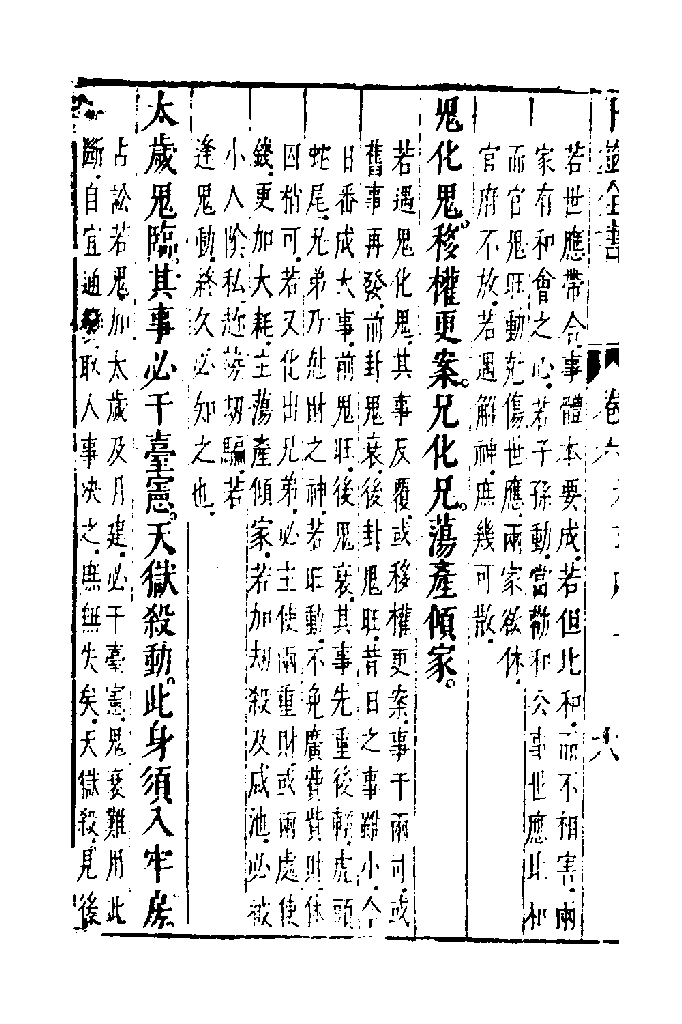 若世應帶合事體本要成若但比和而不相害兩
家有和會之心若子孫動當勸和公事世應比和
而官鬼旺動尅傷世應兩家欲休
官府不放若遇解神庶幾可散
鬼化鬼移權更案兄化兄蕩產傾家
若遇鬼化鬼其事反覆或移權更案事干兩司或
舊事再發前卦鬼衰後卦鬼旺昔日之事雖小今
日番成大事前鬼旺後鬼衰其事先重後輕虎頭
蛇尾兄弟乃尅財之神若旺動不免廣費貲財休
囚稍可若又化出兄弟必主使兩重財或兩處使
錢更加大耗主蕩產傾家若加刼殺及咸池必被
小人陰私趂勢刼騙若
逢鬼動終久必知之也
太歲鬼臨其事必干臺憲天獄殺動此身須入牢房
占訟若鬼加太歲及月建必干臺憲鬼衰難用此
斷自宜通變取人事決之庶無失矣天獄殺見後
卷六
六